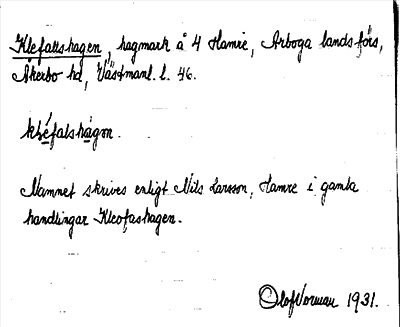 Klefallshagen, hagmark å 4 Hamre, Arboga landsförs,
Åkerbo hd, Västmanl. l. 46.
kléfalshágen.
Namnet skrives enligt Nils Larsson, Hamre i gamla
handlingar Kleofashagen.
Olof Norman 1931.